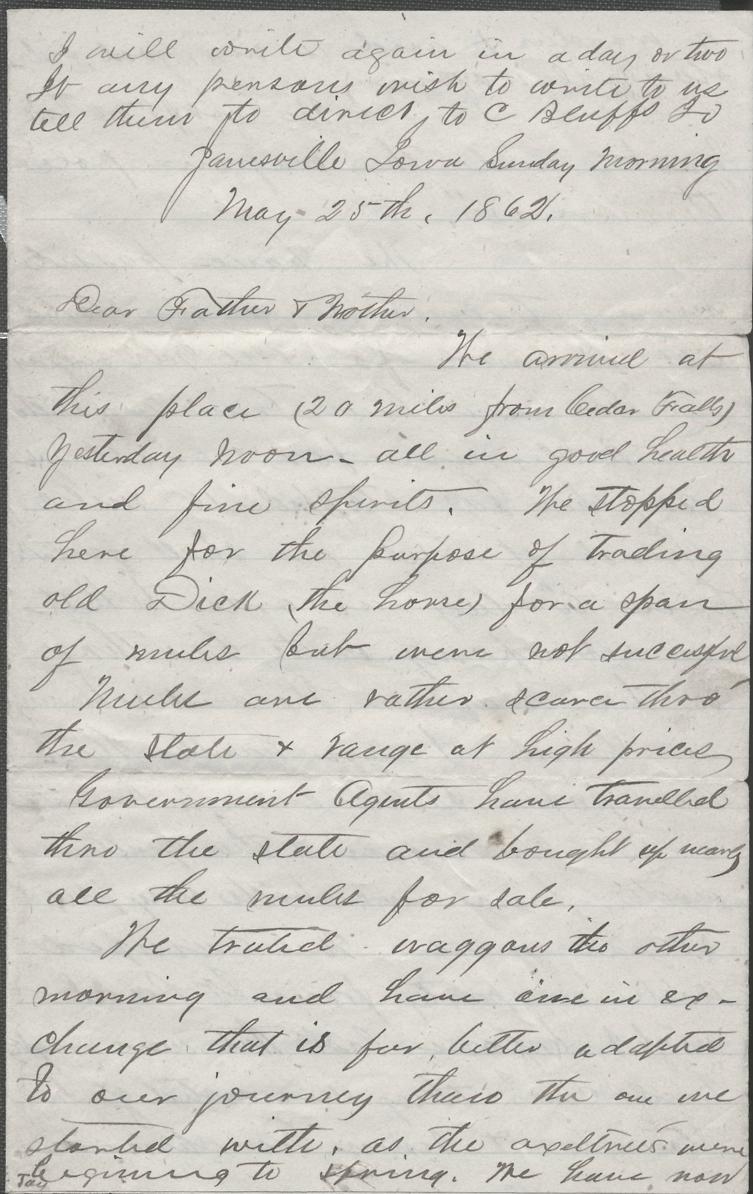 I will write again in a day or two
If any persons wish to write to us
tell them to direct to C Bluffs Io
Janesville Iowa Sunday Morning
May 25th. 1862.
Dear Father & Mother.
We arrived at
this place (20 miles from Cedar Falls)
yesterday noon - all in good health
and fine spirits. We stopped
here for the purpose of trading
old Dick (the horse) for a span
of mules but were not successful
Mules are rather scarce thro'
the state & range at high prices
Government Agents have travelled
thro the state and bought up nearly
all the mules for sale.
We traded waggons the other
morning and have one in ex-
change that is far better adapted
to our journey than the one we
started with. as the axeltrees were
beginning to spring. We have now